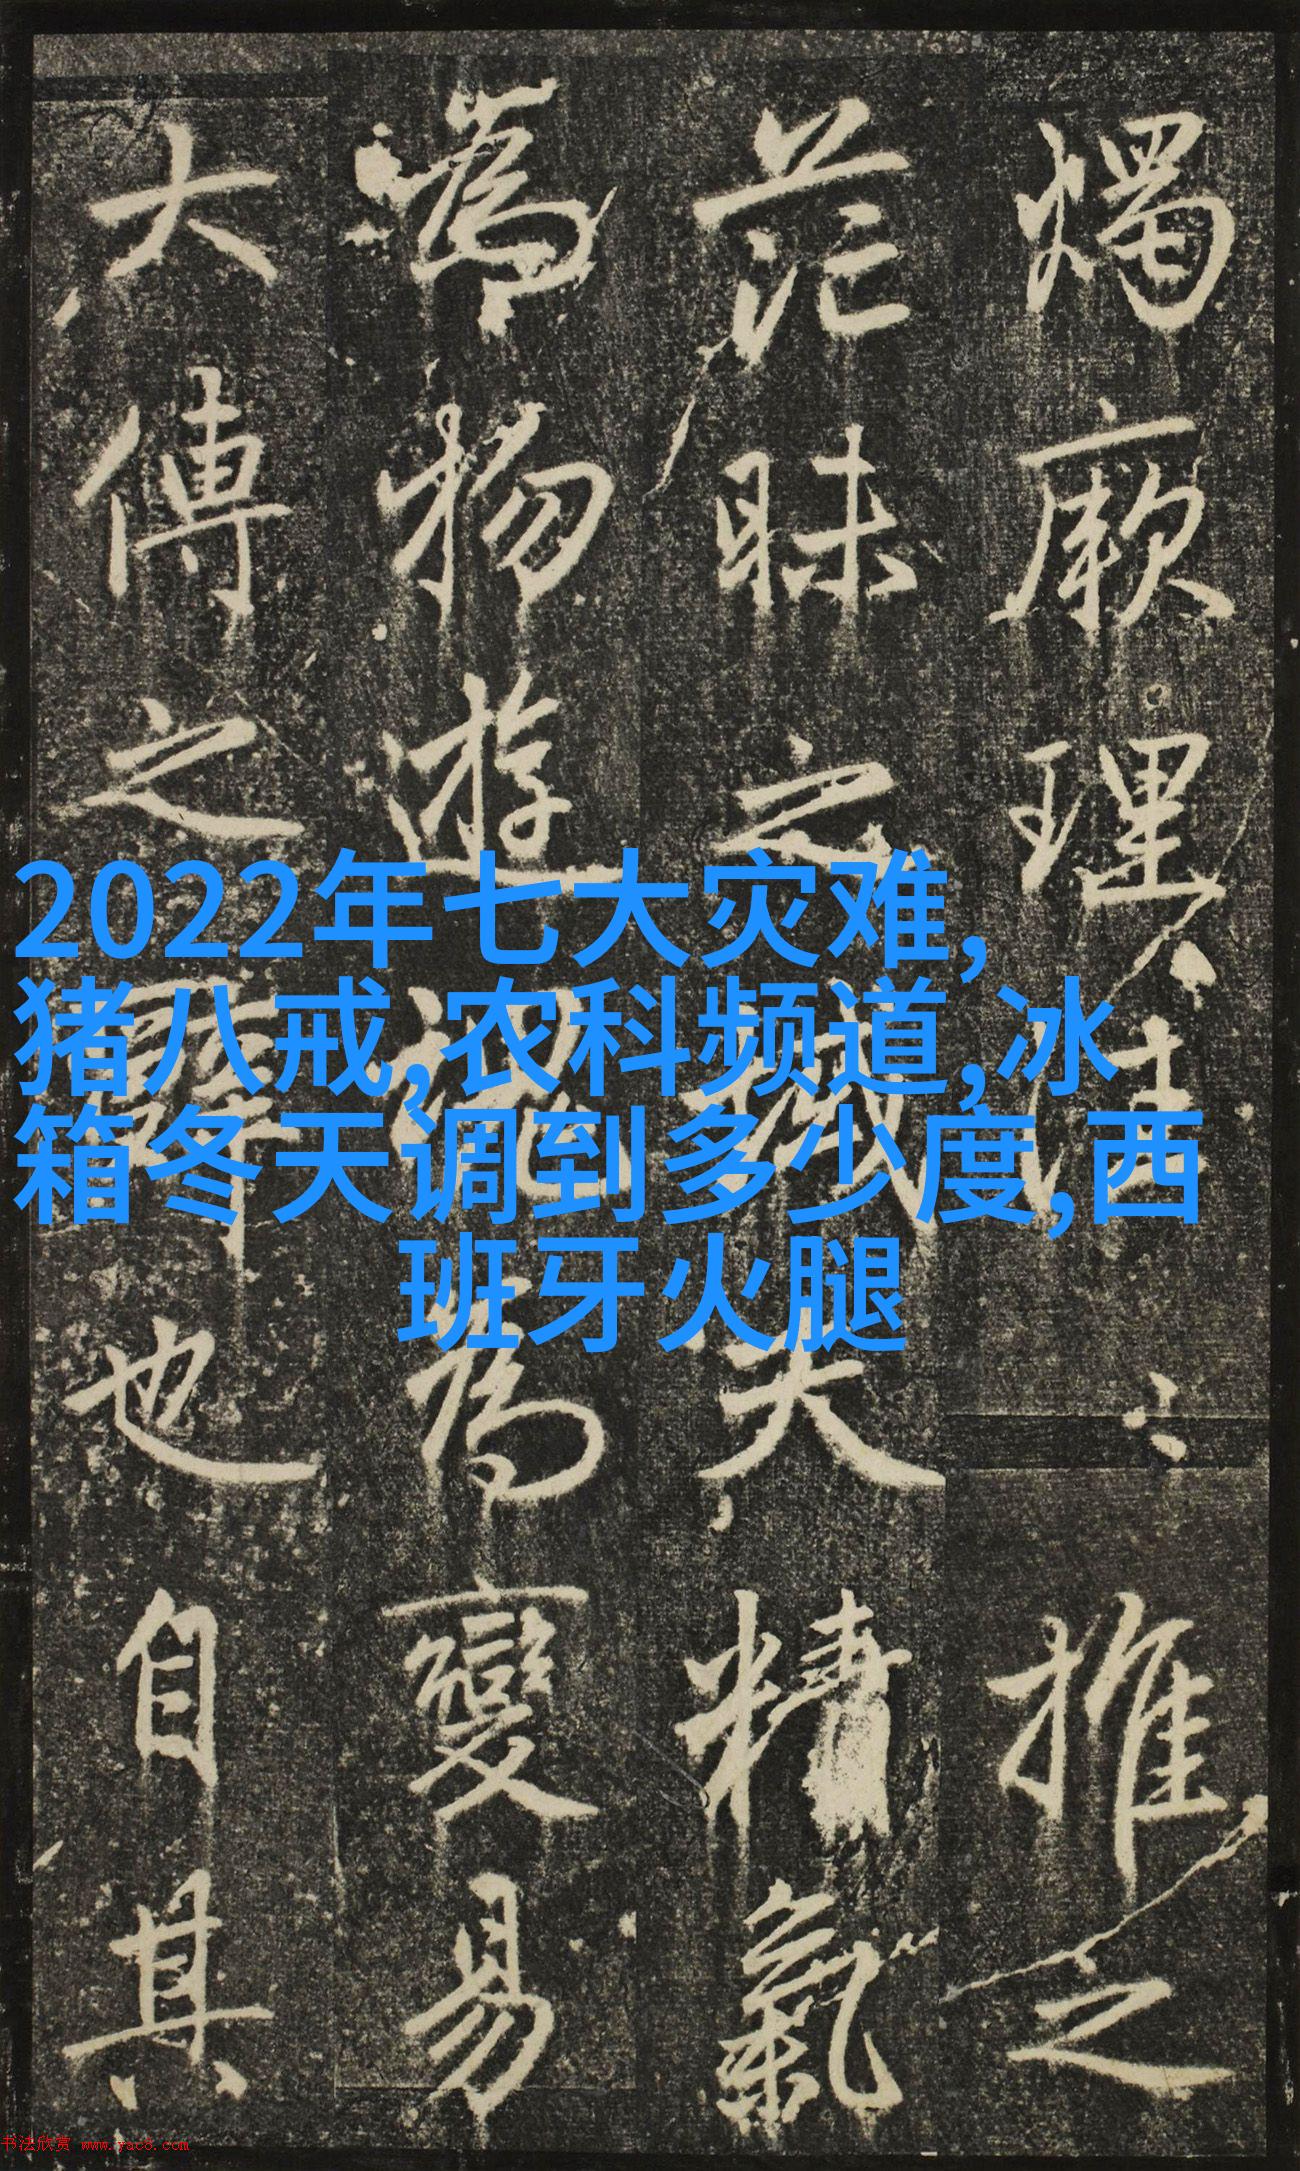 2022年七大灾难,
猪八戒,农科频道,冰
箱冬天调到多少度,西
班牙火腿
燭厥理推之
茫昧之夫精氣
為物遊魂為變易
大傳之辭也自其
书法欣赏 www.yac8.com